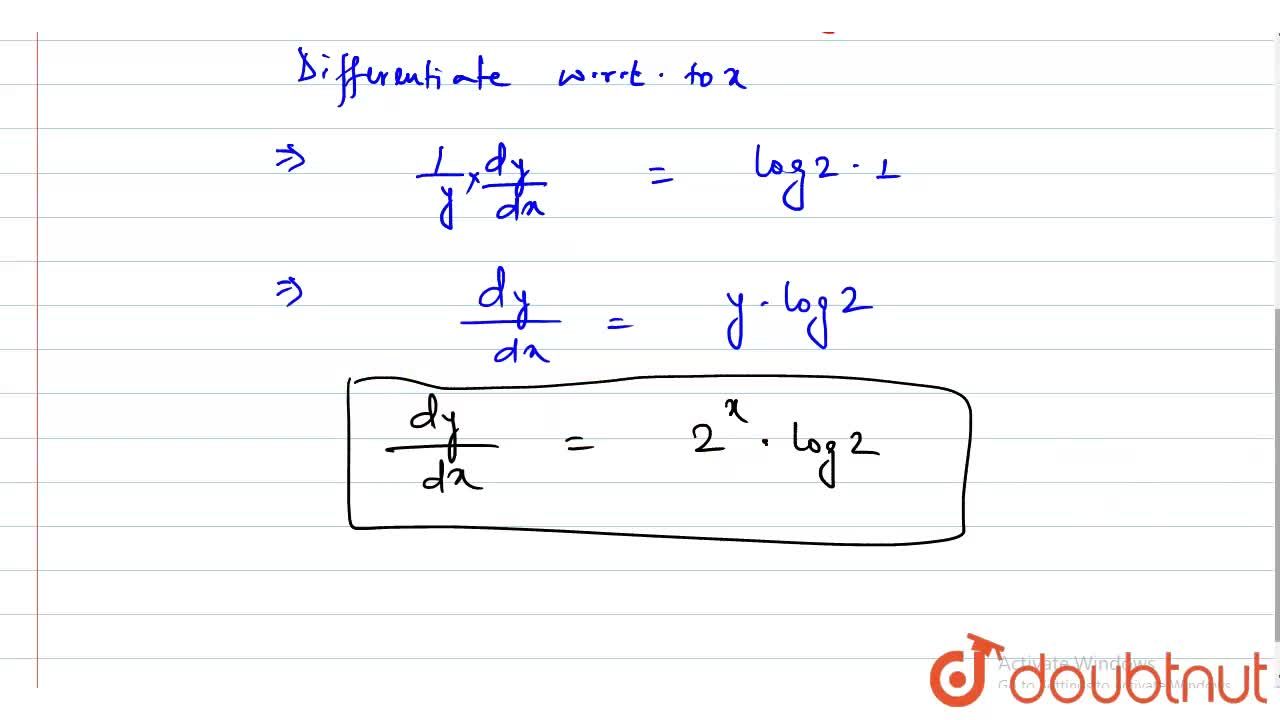 Differentiate w.r.t. to x
⇒ 1/y × dy/dx = log 2 · 1
⇒ dy/dx = y · log 2
dy/dx = 2^x · log 2
Activate Windows
Go to Settings to activate Windows.
doubtnut